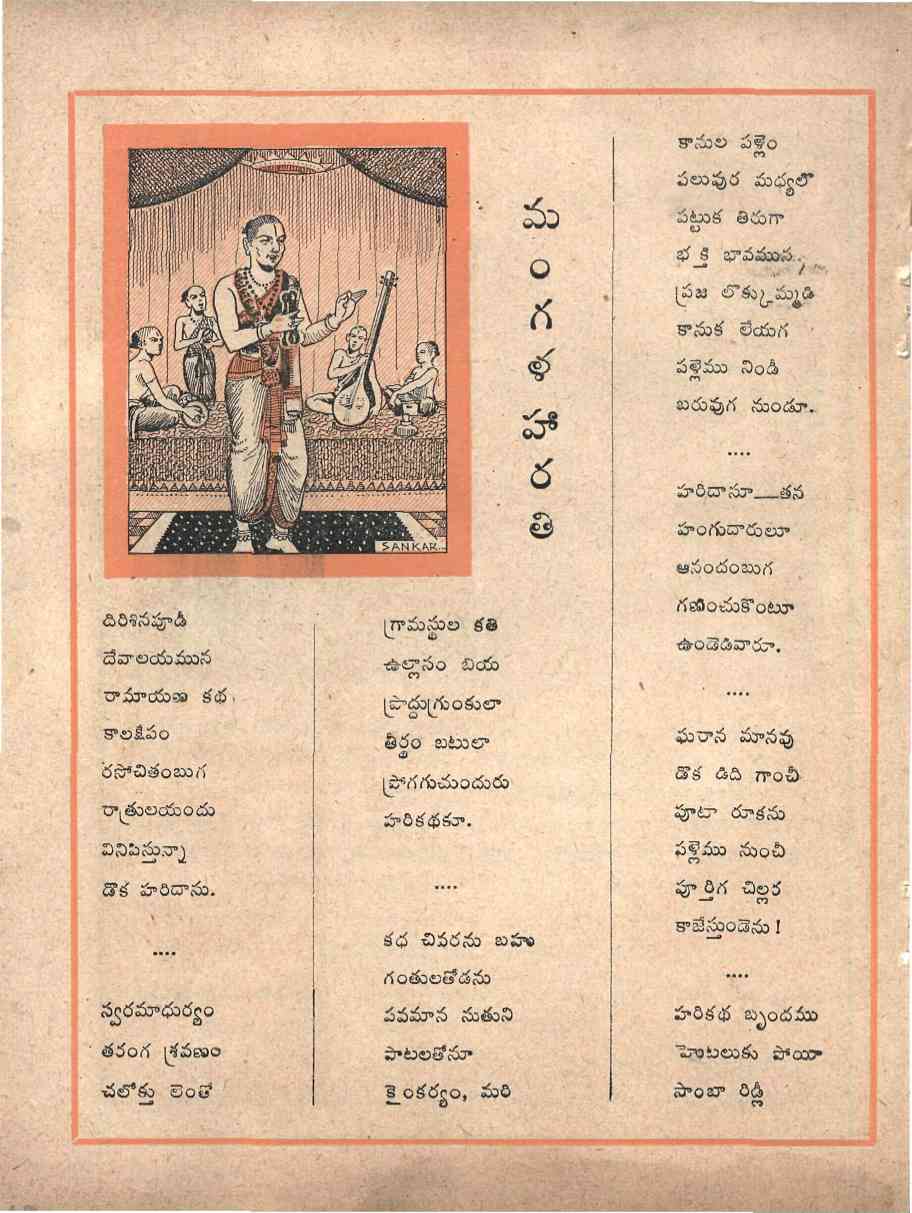 మంగళహారతి
SANKAR..
దిరిశినపూడీ
దేవాలయమున
రామాయణ కథ
కాలక్షేపం
రసోచితంబుగ
రాత్రులయందు
వినిపిస్తున్నా
డొక హరిదాసు.
....
స్వరమాధుర్యం
తరంగ శ్రవణం
చలోక్తు లెంతో
గ్రామస్థుల కతి
ఉల్లాసం బియ
ప్రొద్దుగ్రుంకులా
తీర్థం బటులా
ప్రోగగుచుందురు
హరికథకూ.
....
కధ చివరను బహు
గంతులతోడను
పవమాన సుతుని
పాటలతోనూ
కైంకర్యం, మరి
కానుల పళ్లెం
పలువుర మధ్యలొ
పట్టుక తిరుగా
భక్తి భావమున
ప్రజ లొక్కుమ్మడి
కానుక లేయగ
పళ్లెము నిండీ
బరువుగ నుండూ.
....
హరిదాసూ—తన
హంగుదారులూ
ఆనందంబుగ
గణించుకొంటూ
ఉండెడివారూ.
....
ఘరాన మానవు
డొక డిది గాంచీ
పూటా రూకను
పళ్లెము నుంచీ
పూర్తిగ చిల్లర
కాజేస్తుండెను!
....
హరికథ బృందము
హొటలుకు పోయీ
సాంబా రిడ్లీ